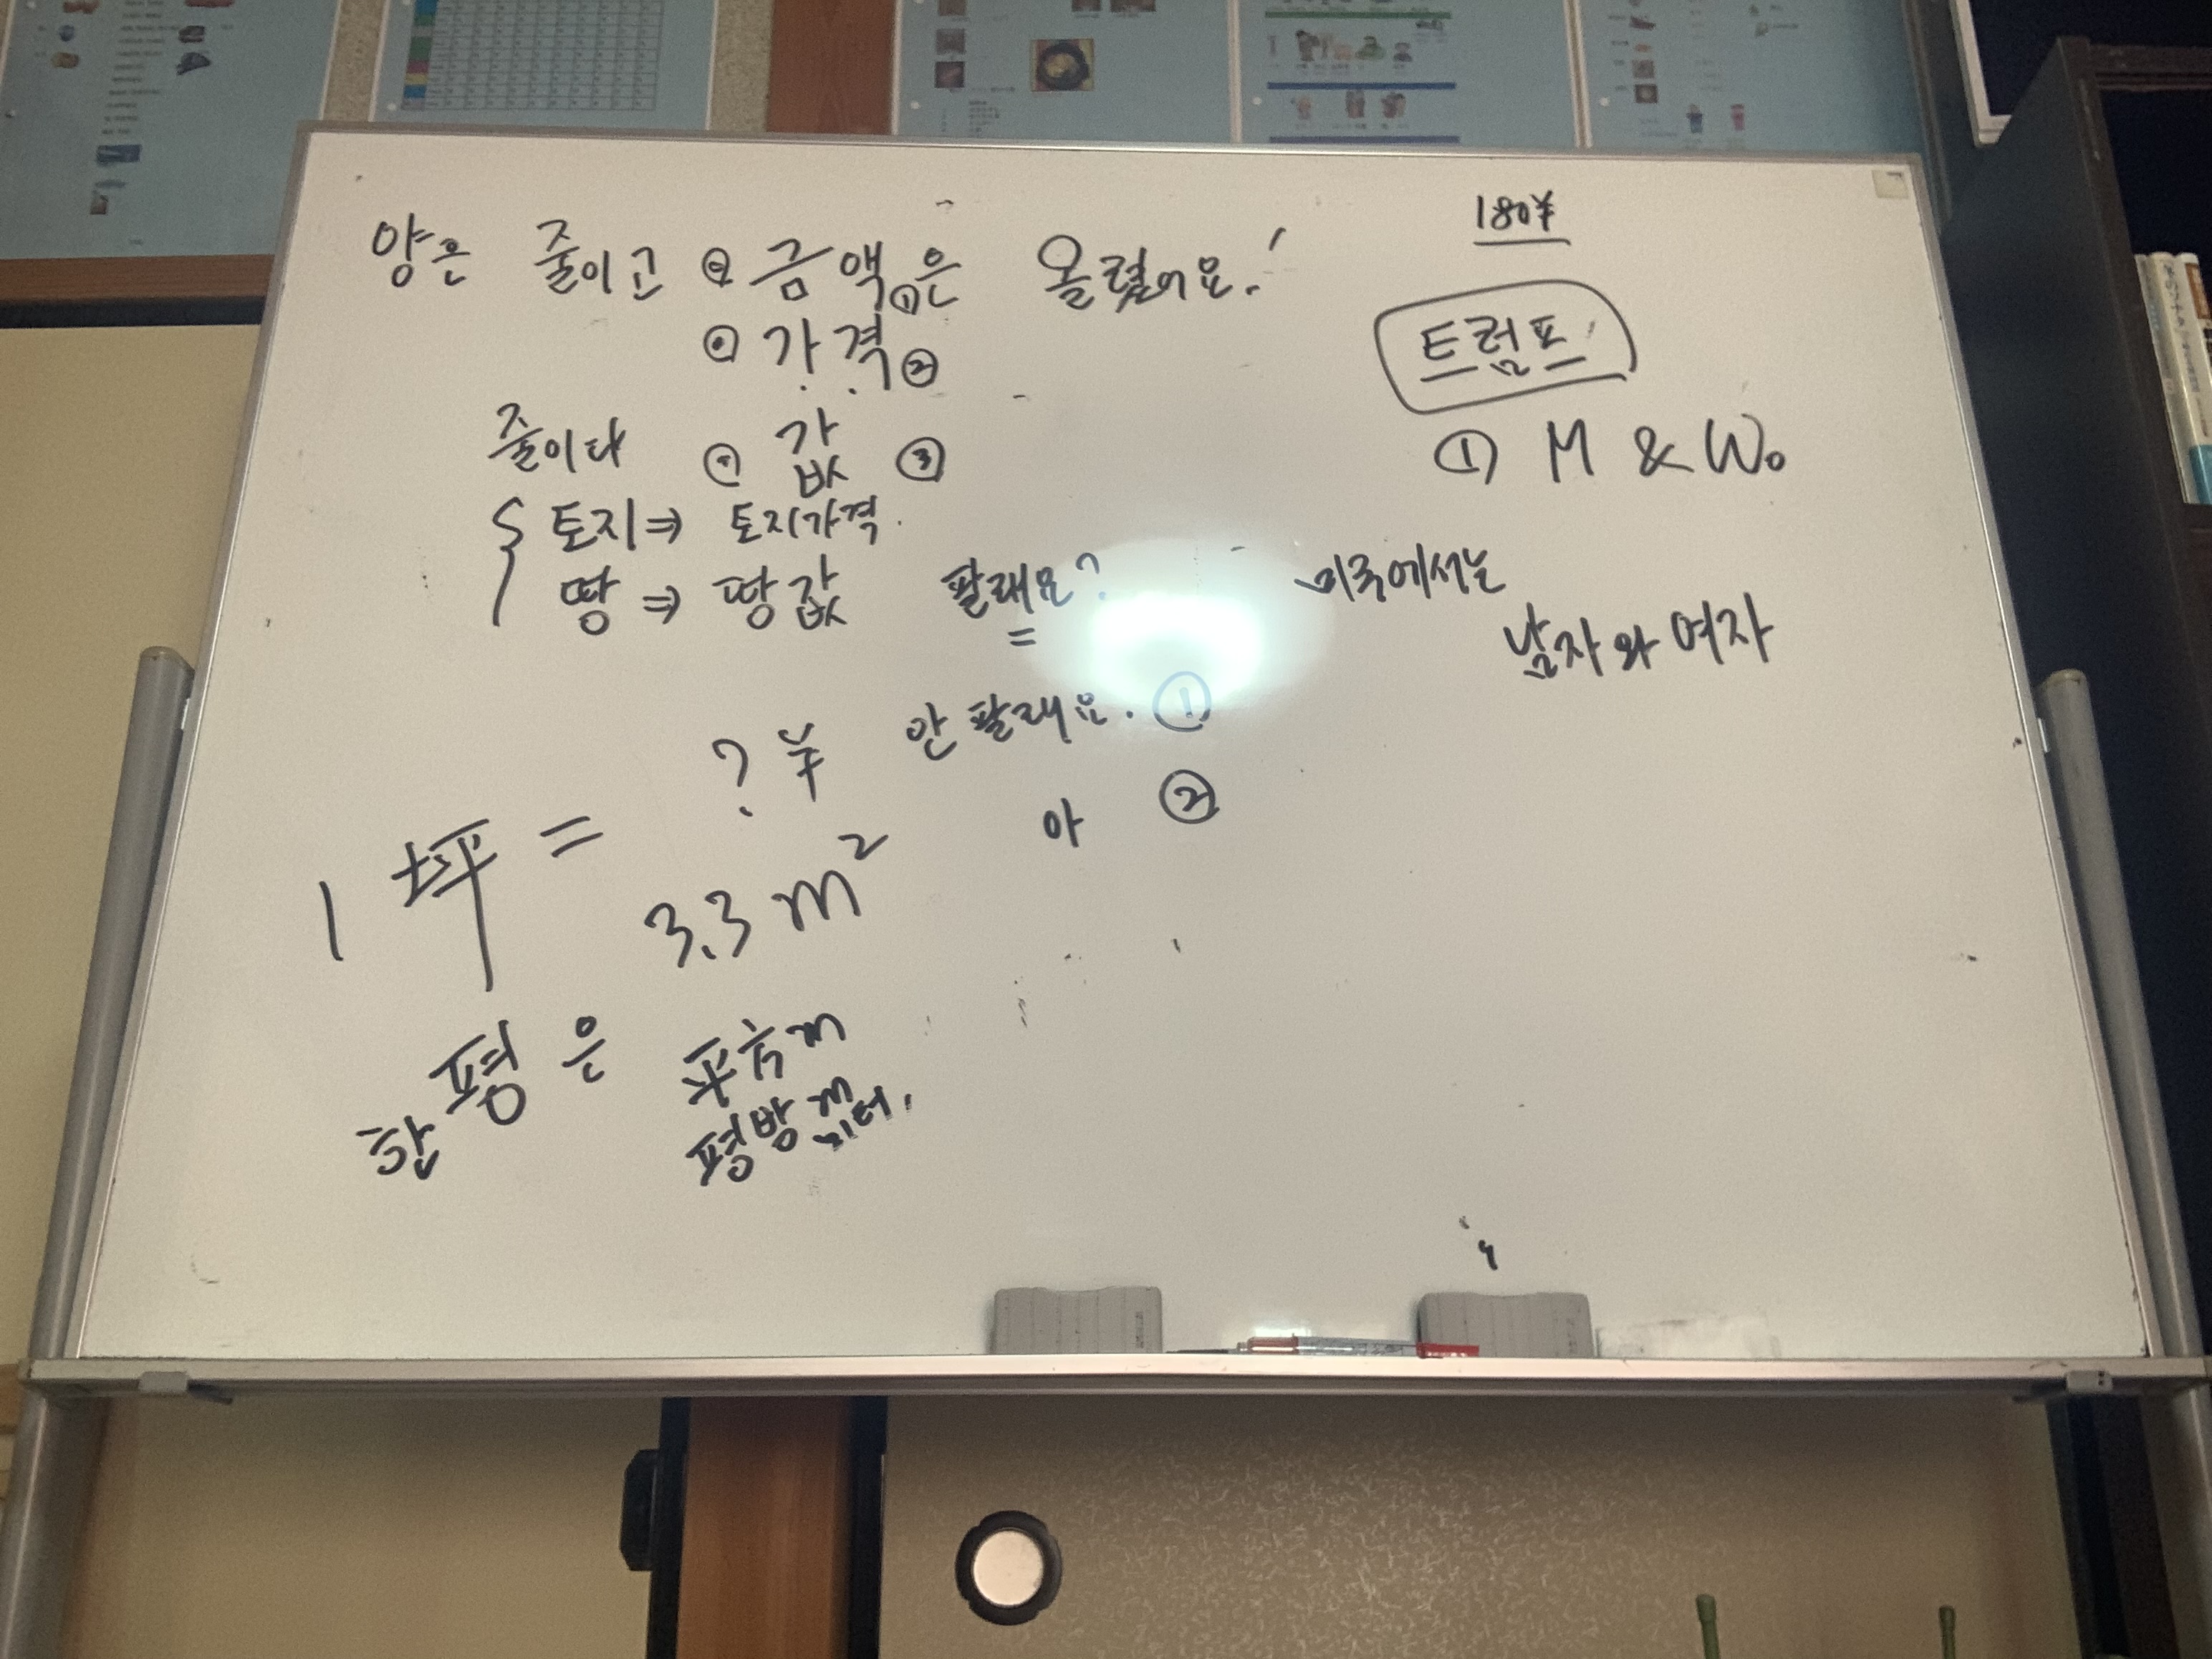 양은 줄이고 ㊁ 금액①은 올렸어요!
가격 ②
줄이다 값 ③
토지⇒ 토지가격.
땅⇒ 땅값
팔래요?
안 팔래요. ①
아 ②
? ¥
1坪 = 3.3 m²
한 평은 平方m
평방m
미터.
180¥
트럼프
① M & Wo
미국에서는
남자와 여자